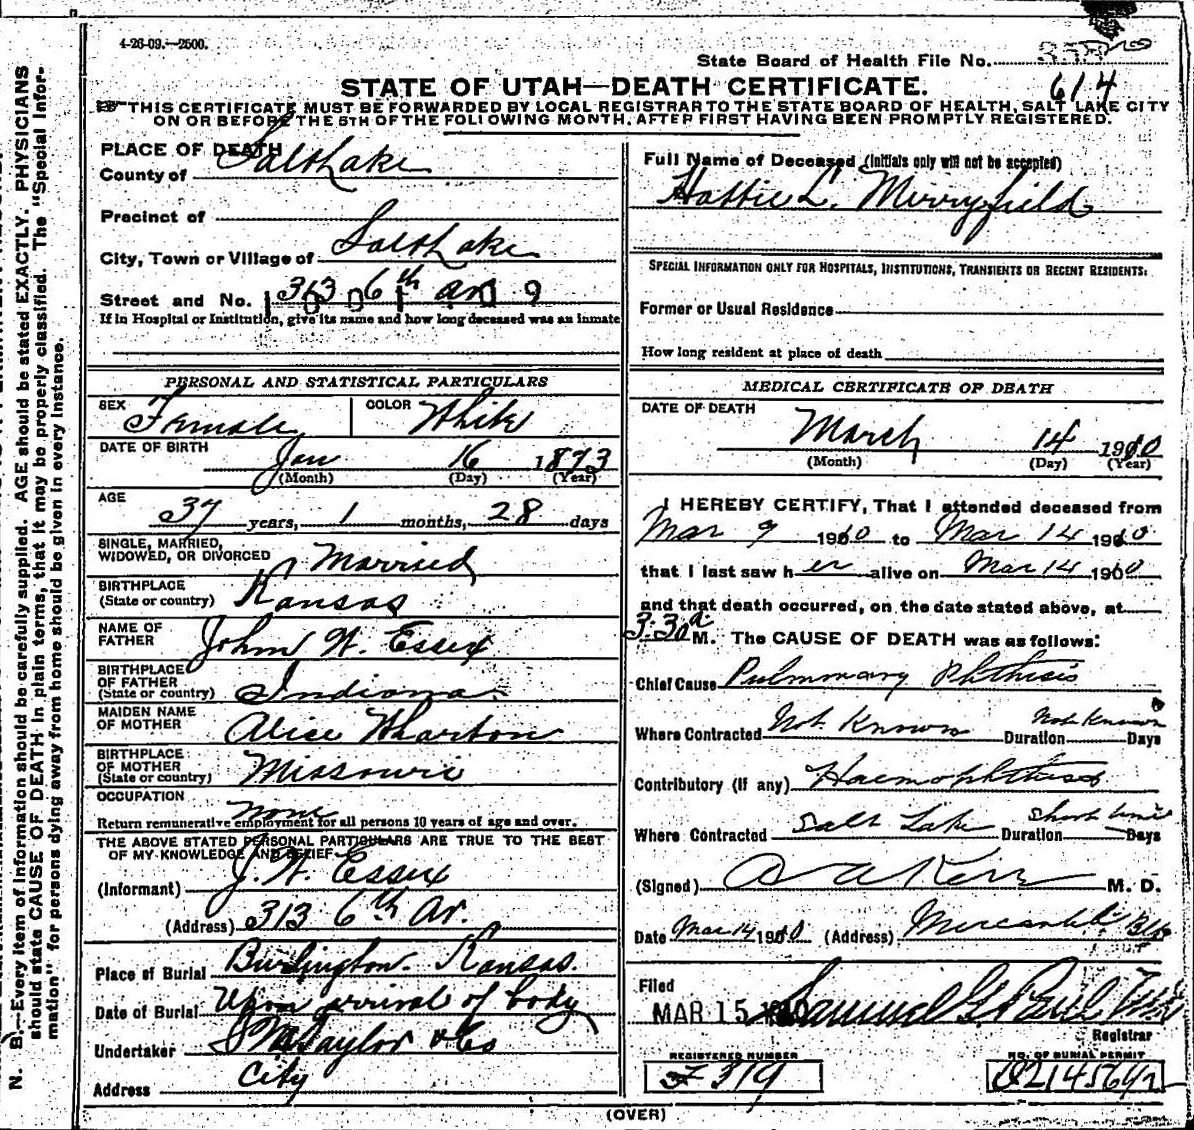 4-26-09.—2500.
State Board of Health File No.
614
STATE OF UTAH—DEATH CERTIFICATE.
THIS CERTIFICATE MUST BE FORWARDED BY LOCAL REGISTRAR TO THE STATE BOARD OF HEALTH, SALT LAKE CITY
ON OR BEFORE THE 5TH OF THE FOLLOWING MONTH, AFTER FIRST HAVING BEEN PROMPTLY REGISTERED.
PLACE OF DEATH
County of Salt Lake
Precinct of
City, Town or Village of Salt Lake
Street and No. 313 6th av
If in Hospital or Institution, give its name and how long deceased was an inmate
PERSONAL AND STATISTICAL PARTICULARS
SEX Female COLOR White
DATE OF BIRTH Jan 16 1873
(Month) (Day) (Year)
AGE 37 years, 1 months, 28 days
SINGLE, MARRIED,
WIDOWED, OR DIVORCED Married
BIRTHPLACE
(State or country) Kansas
NAME OF
FATHER John W. Essex
BIRTHPLACE
OF FATHER
(State or country) Indiana
MAIDEN NAME
OF MOTHER Alice Wharton
BIRTHPLACE
OF MOTHER
(State or country) Missouri
OCCUPATION none
Return remunerative employment for all persons 10 years of age and over.
THE ABOVE STATED PERSONAL PARTICULARS ARE TRUE TO THE BEST
OF MY KNOWLEDGE AND BELIEF
(Informant) J. W. Essex
(Address) 313 6th Av.
Place of Burial Burlington. Kansas.
Date of Burial Upon arrival of body
Undertaker S M Taylor & Co
Address City
Full Name of Deceased (Initials only will not be accepted)
Hattie L. Merryfield
SPECIAL INFORMATION ONLY FOR HOSPITALS, INSTITUTIONS, TRANSIENTS OR RECENT RESIDENTS:
Former or Usual Residence
How long resident at place of death
MEDICAL CERTIFICATE OF DEATH
DATE OF DEATH
March 14 1910
(Month) (Day) (Year)
I HEREBY CERTIFY, That I attended deceased from
Mar 9 1910 to Mar 14 1910
that I last saw her alive on Mar 14 1910
and that death occurred, on the date stated above, at
3.30a M. The CAUSE OF DEATH was as follows:
Chief Cause Pulmonary Phthisis
Where Contracted Not Known Duration Not Known Days
Contributory (if any) Haemophthisis
Where Contracted Salt Lake Duration Short time Days
(Signed) M. D.
Date Mar 14 1910 (Address) Mercantile Blk
Filed
MAR 15 1910 Samuel G. Paul
Registrar
REGISTERED NUMBER
F 319
NO. OF BURIAL PERMIT
(OVER)
N. B.—Every item of information should be carefully supplied. AGE should be stated EXACTLY. PHYSICIANS
should state CAUSE OF DEATH in plain terms, that it may be properly classified. The "Special Infor-
mation" for persons dying away from home should be given in every instance.